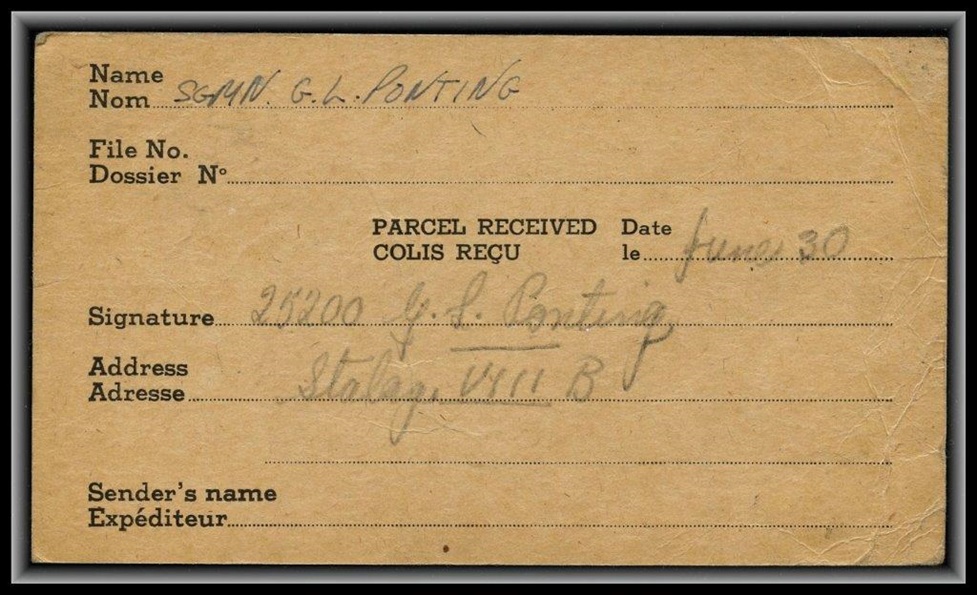 Name
Nom SGMN. G.L. PONTING
File No.
Dossier Nº
PARCEL RECEIVED Date
COLIS REÇU le June 30
Signature 25200 G. L. Ponting
Address
Adresse Stalag. VIII B
Sender's name
Expéditeur